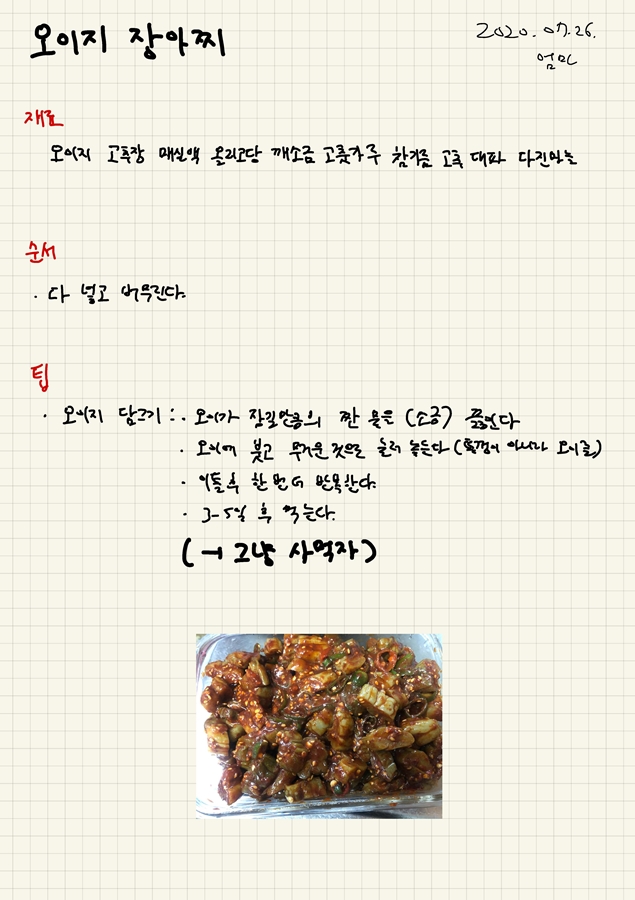 오이지 장아찌
2020. 07. 26.
엄마
재료
오이지 고추장 매실액 올리고당 깨소금 고춧가루 참기름 고추 대파 다진마늘
순서
· 다 넣고 버무린다.
팁
· 오이지 담그기 : · 오이가 잠길만큼의 짠 물을 (소금) 끓인다
· 오이에 붓고 무거운 것으로 눌러 놓는다 (뚜껑이 아니라 오이를)
· 이틀 후 한 번 더 반복한다.
· 3-5일 후 먹는다.
(→ 그냥 사먹자)